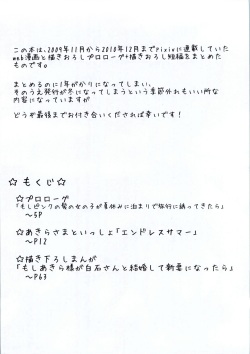 この本は、2009年11月から2010年12月までpixivに連載していた
web漫画と描きおろしプロローグ+描きおろし短編をまとめた
ものです。
まとめるのに1年がかりになってしまい、
そのうえ発行が冬になってしまうという季節外れもいい所な
内容になっていますが
どうぞ最後までお付き合いくだされば幸いです!
☆ もくじ ☆
☆プロローグ
「もしピンクの髪の女の子が夏休みに泊まりで旅行に誘ってきたら」
～5P
☆あきらさまといっしょ「エンドレスサマー」
～P12
☆描き下ろしまんが
「もしあきら様が白石さんと結婚して新妻になったら」
～P63